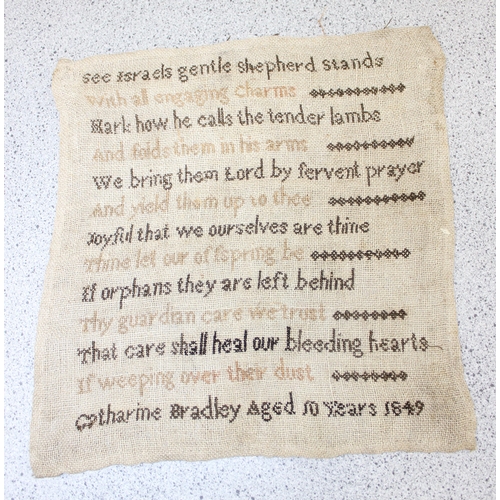 See Israels gentle shepherd stands
With all engaging Charms
Hark how he calls the tender lambs
And folds them in his arms
We bring them Lord by fervent prayer
And yield them up to thee
Joyful that we ourselves are thine
Thine let our offspring be
If orphans they are left behind
Thy guardian care we trust
That care shall heal our bleeding hearts
If weeping over their dust
Catharine Bradley Aged 10 Years 1849